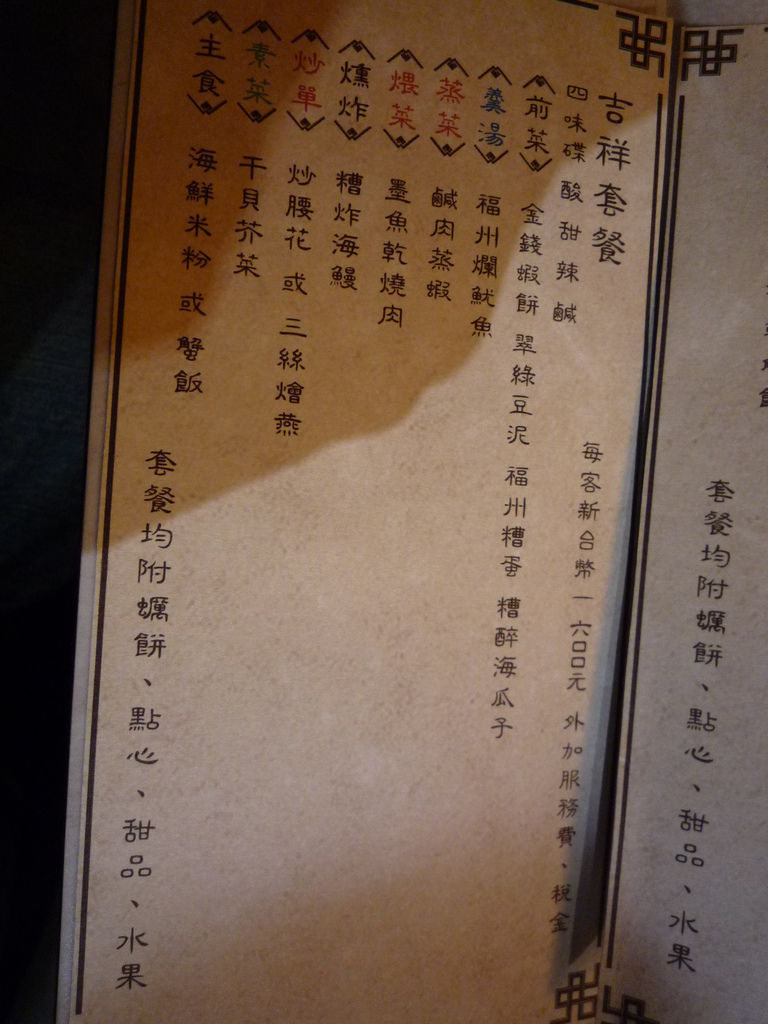 吉祥套餐
四味碟 酸 甜 辣 鹹 每客新台幣一六口口元 外加服務費、稅金
前菜 金錢蝦餅 翠綠豆泥 福州糟蛋 糟醉海瓜子
羹湯 福州爛魷魚
蒸菜 鹹肉蒸蝦
煨菜 墨魚乾燒肉
燻炸 糟炸海鰻
炒單 炒腰花 或 三絲燴燕
素菜 干貝芥菜
主食 海鮮米粉 或 蟹飯
套餐均附蠣餅、點心、甜品、水果
套餐均附蠣餅、點心、甜品、水果